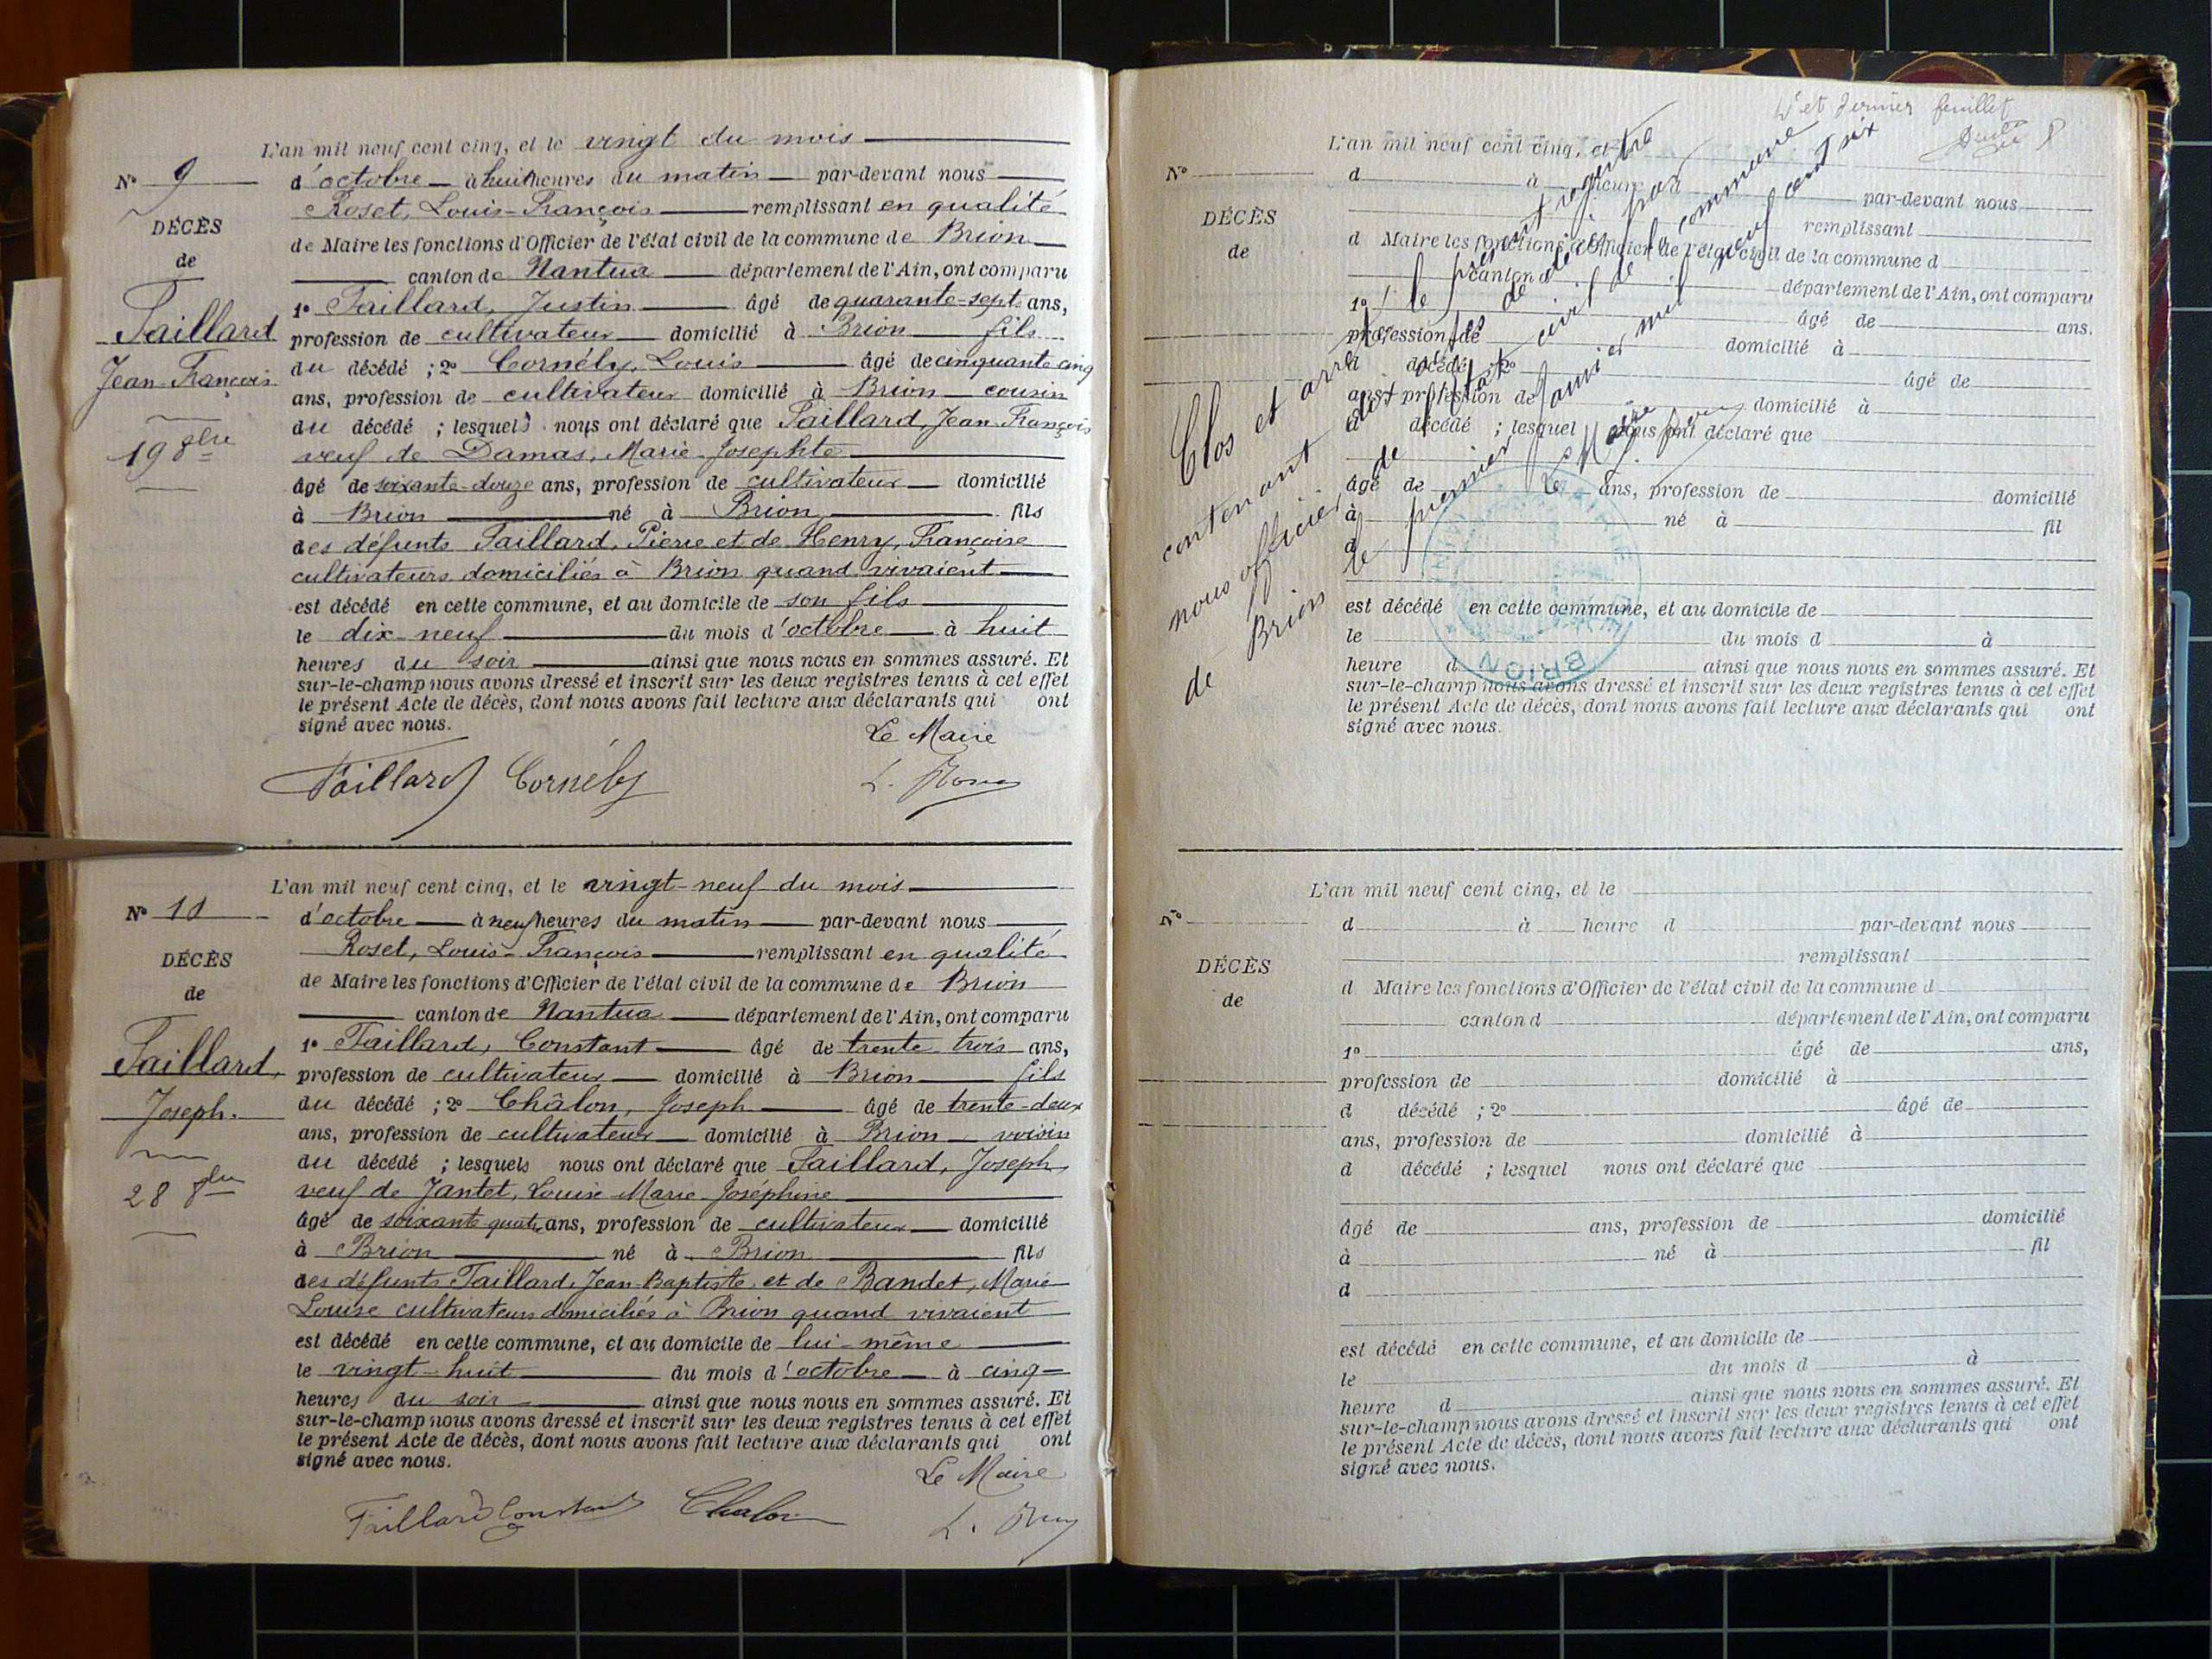 L'an mil neuf cent cinq, et le vingt du mois
N° 9
d'octobre à huit heures du matin par-devant nous
Roset, Louis-François remplissant en qualité
DÉCÈS
de Maire les fonctions d'Officier de l'état civil de la commune de Brion
de
canton de Nantua département de l'Ain, ont comparu
1° Taillard, Justin âgé de quarante-sept ans,
Taillard
profession de cultivateur domicilié à Brion fils
Jean-François
du décédé ; 2° Cornély, Louis âgé de cinquante cinq
ans, profession de cultivateur domicilié à Brion cousin
du décédé ; lesquels nous ont déclaré que Taillard, Jean-François
19 8bre
veuf de Damas, Marie-Josephte
âgé de soixante-douze ans, profession de cultivateur domicilié
à Brion né à Brion fils
des défunts Taillard, Pierre et de Henry, Françoise
cultivateurs domiciliés à Brion quand vivaient
est décédé en cette commune, et au domicile de son fils
le dix-neuf du mois d'octobre à huit
heures du soir ainsi que nous nous en sommes assuré. Et
sur-le-champ nous avons dressé et inscrit sur les deux registres tenus à cet effet
le présent Acte de décès, dont nous avons fait lecture aux déclarants qui ont
signé avec nous.
Le Maire
Taillard Cornély
L'an mil neuf cent cinq, et le vingt-neuf du mois
N° 10
d'octobre à neuf heures du matin par-devant nous
Roset, Louis-François remplissant en qualité
DÉCÈS
de Maire les fonctions d'Officier de l'état civil de la commune de Brion
de
canton de Nantua département de l'Ain, ont comparu
1° Taillard, Constant âgé de trente-trois ans,
Taillard,
profession de cultivateur domicilié à Brion fils
Joseph.
du décédé ; 2° Châlon, Joseph âgé de trente-deux
ans, profession de cultivateur domicilié à Brion voisin
du décédé ; lesquels nous ont déclaré que Taillard, Joseph
28 8bre
veuf de Jantet, Louise-Marie-Joséphine
âgé de soixante quatre ans, profession de cultivateur domicilié
à Brion né à Brion fils
des défunts Taillard, Jean-Baptiste et de Bandet, Marie
Louise cultivateurs domiciliés à Brion quand vivaient
est décédé en cette commune, et au domicile de lui-même
le vingt-huit du mois d'octobre à cinq
heures du soir ainsi que nous nous en sommes assuré. Et
sur-le-champ nous avons dressé et inscrit sur les deux registres tenus à cet effet
le présent Acte de décès, dont nous avons fait lecture aux déclarants qui ont
signé avec nous.
Le Maire
Taillard Constant Chalon
et dernier feuillet
L'an mil neuf cent cinq, et
N°
d à heure d par-devant nous
DÉCÈS
remplissant
de
d Maire les fonctions d'Officier de l'état civil de la commune d
canton d département de l'Ain, ont comparu
1° âgé de ans.
profession de domicilié à
d décédé ; 2° âgé de
ans, profession de domicilié à
d décédé ; lesquel nous ont déclaré que
âgé de ans, profession de domicilié
à né à fil
d
est décédé en cette commune, et au domicile de
le du mois d à
heure d ainsi que nous nous en sommes assuré. Et
sur-le-champ nous avons dressé et inscrit sur les deux registres tenus à cet effet
le présent Acte de décès, dont nous avons fait lecture aux déclarants qui ont
signé avec nous.
Clos et arrêté le présent registre
contenant dix actes de décès par
nous officier de l'état civil de la commune
de Brion le premier janvier mil neuf cent six
Le Maire
MAIRIE
BRION
L'an mil neuf cent cinq, et le
N°
d à heure d par-devant nous
remplissant
DÉCÈS
d Maire les fonctions d'Officier de l'état civil de la commune d
de
canton d département de l'Ain, ont comparu
1° âgé de ans,
profession de domicilié à
d décédé ; 2° âgé de
ans, profession de domicilié à
d décédé ; lesquel nous ont déclaré que
âgé de ans, profession de domicilié
à né à fil
d
est décédé en cette commune, et au domicile de
le du mois d à
heure d ainsi que nous nous en sommes assuré. Et
sur-le-champ nous avons dressé et inscrit sur les deux registres tenus à cet effet
le présent Acte de décès, dont nous avons fait lecture aux déclarants qui ont
signé avec nous.